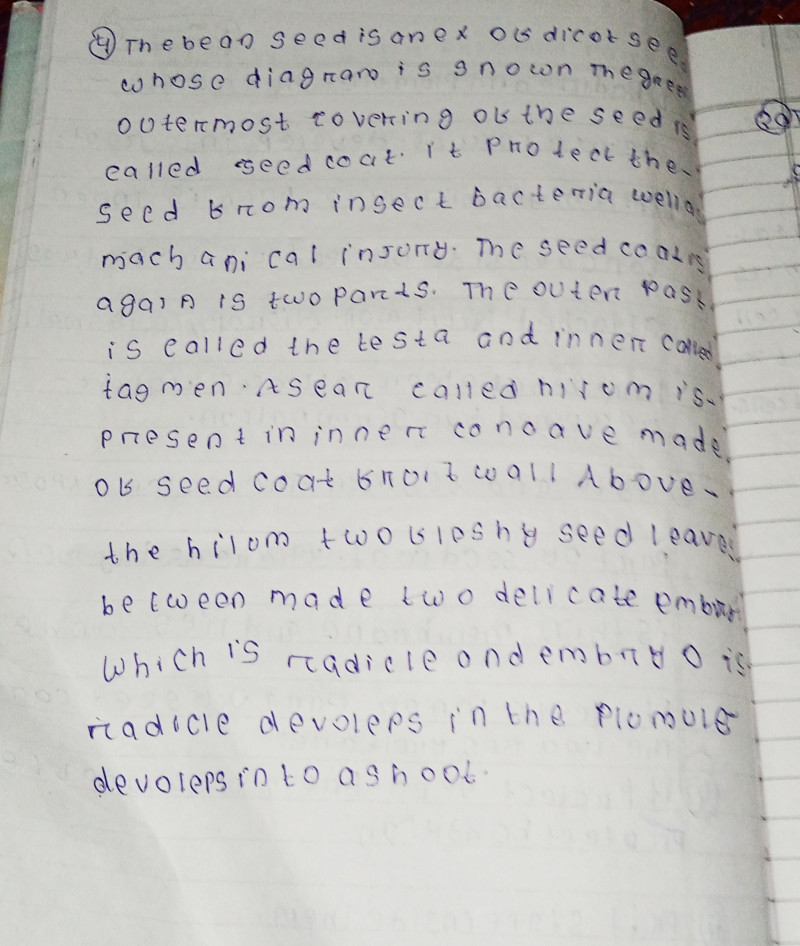 ④ The bean seed is an ex of dicot see
whose diagram is snown The green
outermost covering of the seed is
called seed coat. it protect the
seed from insect bacteria well as
machanical insury. The seed coat is
again is two parts. The outer past
is called the testa and inner called
tagmen. A sear called hilum is
present in inner conoave made
of seed coat wall Above
the hilum two fleshy seed leaves
between made two delicate
which is radicle and embryo is
radicle devoleps in the plumule
devoleps into a shoot.
29